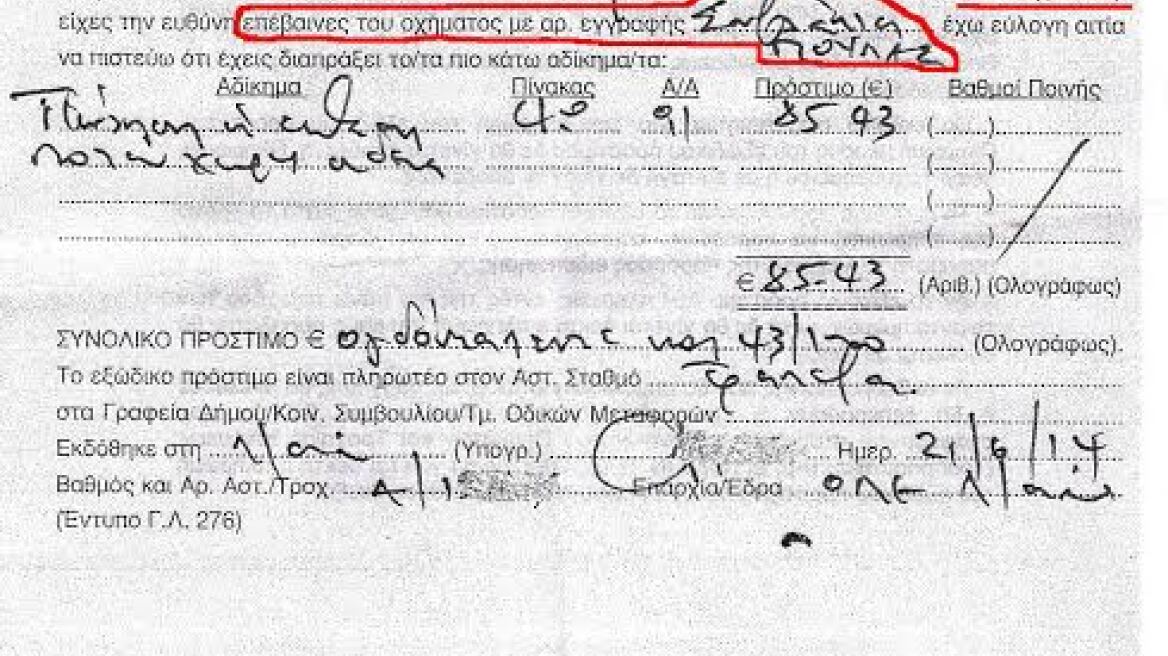 είχες την ευθύνη επέβαινες του οχήματος με αρ. εγγραφής ... έχω εύλογη αιτία
να πιστεύω ότι έχεις διαπράξει το/τα πιο κάτω αδίκημα/τα:
Αδίκημα Πίνακας Α/Α Πρόστιμο (€) Βαθμοί Ποινής
Πώληση 4ο 91 85 43 (......)
ποτών χωρίς άδεια (......)
(......)
(......)
€ 85-43 (Αριθ.) (Ολογράφως)
ΣΥΝΟΛΙΚΟ ΠΡΟΣΤΙΜΟ € ογδόντα πέντε και 43/100 (Ολογράφως).
Το εξώδικο πρόστιμο είναι πληρωτέο στον Αστ. Σταθμό
στα Γραφεία Δήμου/Κοιν. Συμβουλίου/Τμ. Οδικών Μεταφορών
Εκδόθηκε στη (Υπογρ.) Ημερ. 21/6/14
Βαθμός και Αρ. Αστ./Τροχ. Επαρχία/Έδρα
(Έντυπο Γ.Λ. 276)